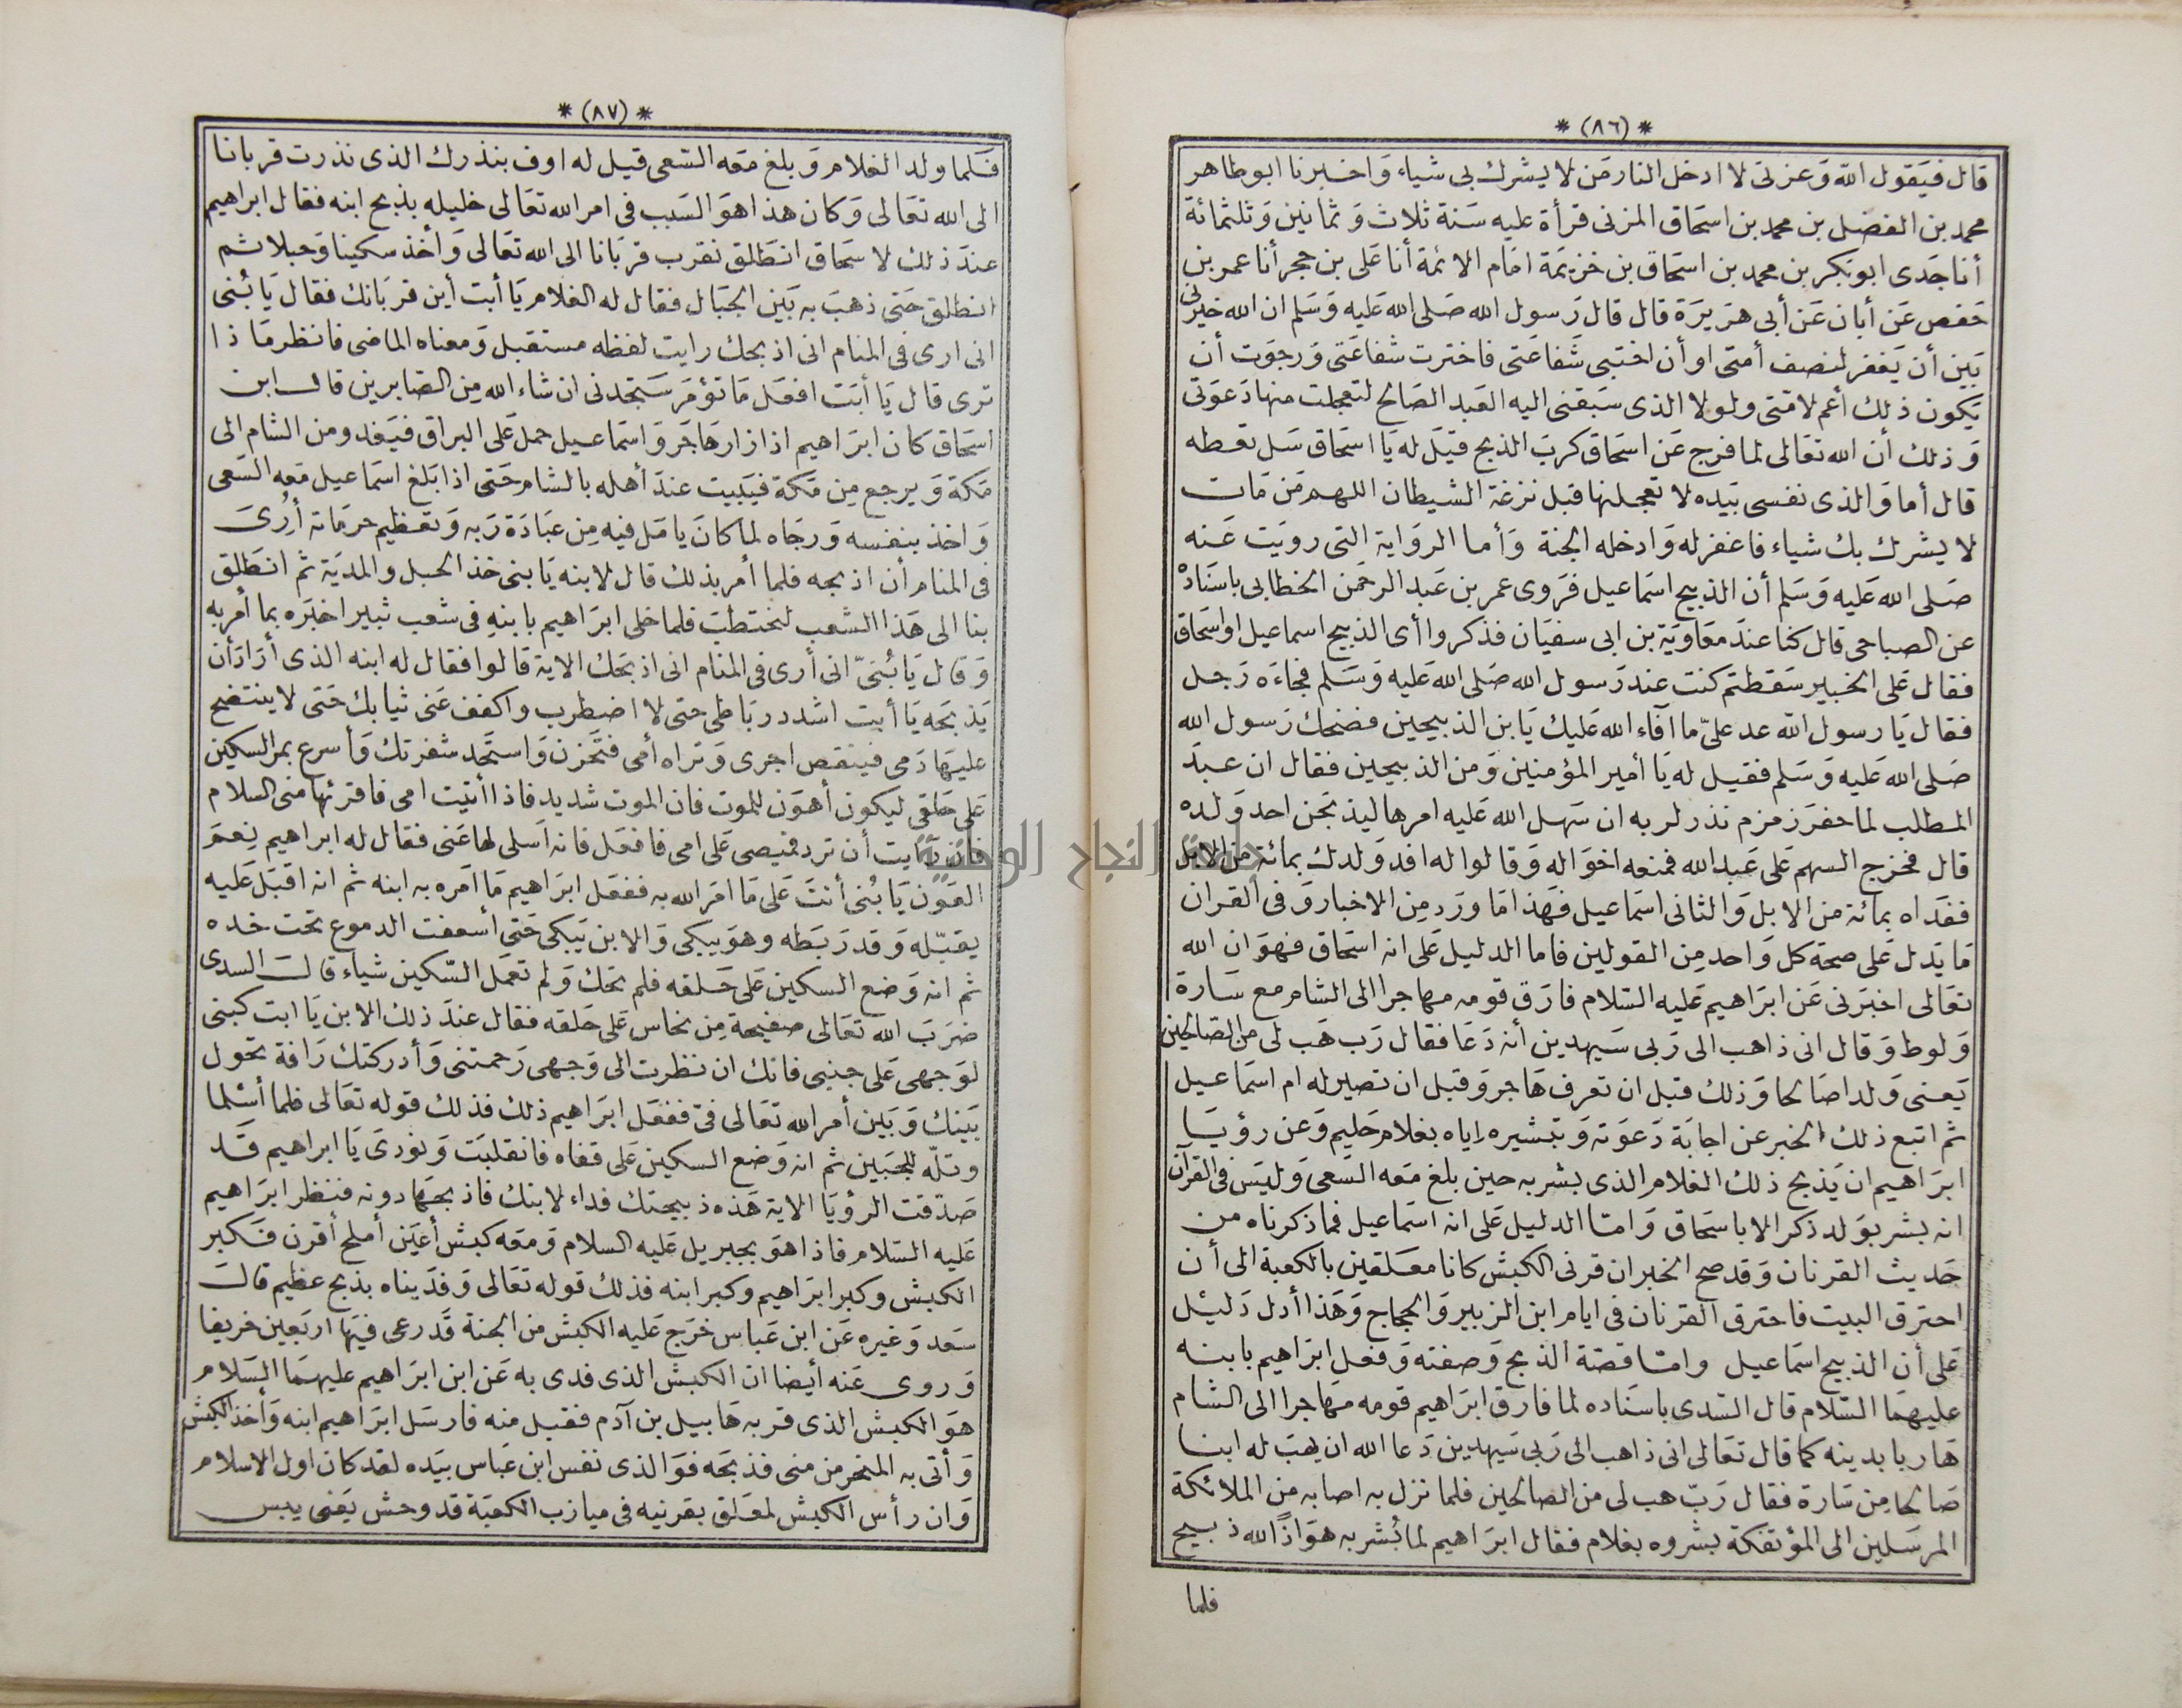 * (٨٦) *
قال فيقول الله وَعزتى لا ادخل النار مَن لا يشرك بى شياء وَاخبرنا ابو طاهر
محمد بن الفضل بن محمد بن اسحَاق المزنى قرأة عليه سَنة ثلاث وَثمانين وَثلثمائة
أنا جَدى ابو بَكر بن محمد بن اسحَاق بن خزيمَة امَام الائمة أنا عَلى بن حجر أنا عمر بن
حَفص عَن أبان عَن أبى هرَيرَة قال قال رَسول الله صَلى الله عَليه وَسَلم ان الله خيرنى
بَين أن يَغفر لنصف أمتى او أن اختبى شَفاعَتى فاخترت شفاعَتى وَرجوَت أن
يَكون ذلك أعم لامتى ولولا الذى سَبقنى اليه العَبد الصَالح لتعجلت منها دَعوَتى
وَذلك أن الله تعَالى لما فرج عَن اسحَاق كربَ الذبح قيَل له يَا اسحَاق سَل تعَطه
قال أما وَالذى نفسى بيَده لا تعجلنها قبل نزغة الشيطان اللهم مَن مَات
لا يشرك بك شياء فاغفر له وَادخله الجنة وَأما الروَاية التى رويَت عَنه
صَلى الله عَليه وَسَلم أن الذبيح اسمَاعيل فرَوى عمر بن عَبد الرحمَن الخطابى باسنَاده
عن الصباحى قال كنا عندَ معَاويَة بن ابى سفيَان فذكروا أى الذبيح اسماعيل او اسحَاق
فقال عَلى الخبير سَقطتم كنت عند رَسول الله صَلى الله عَليه وَسَلم فجاءَه رَجل
فقال يَا رسول الله عد علىّ مما آفاء الله عَليك يَا بن الذبيحين فضحك رَسول الله
صَلى الله عَليه وَسَلم فقيل له يَا أمير المؤمنين وَمن الذبيحين فقال ان عبدَ
المطلب لما حفرَ زمزم نذر لربه ان سَهل الله عَليه امرها ليذبحَن احد وَلده
قال فخرج السهم عَلى عَبد الله فمنعه اخوَاله وَقالوا له افد وَلدك بمائة من الابل
ففَداه بمائة من الابل وَالثانى اسمَاعيل فهَذا مَا ورَد مِن الاخبار وَفى القران
مَا يَدل عَلى صحة كل وَاحد مِن القولين فاما الدليل عَلى انه اسحَاق فهوَ ان الله
تعَالى اخبَرنى عَن ابرَاهيم عَليه السّلام فارَق قومه مهاجرا الى الشام مع سَارة
وَلوط وَقال انى ذاهب الى رَبى سَيهدين أنه دَعَا فقال رَب هَب لى من الصَالحين
يَعنى وَلدا صَالحا وَذلك قبل ان تعرف هَاجر وَقبل ان تصير له ام اسمَاعيل
ثم اتبع ذلك الخبر عن اجابَة دَعوَته وَتبشيره اياه بغلام حَليم وَعن رؤيَا
ابرَاهيم ان يَذبح ذلك الغلام الذى بشر به حين بلغ مَعه السعى وَليَس فى القرآن
انه بشر بوَلد ذكر الا باسحَاق وَامتا الدليل عَلى انه اسمَاعيل فما ذكرناه من
حَديث القرنان وَقد صح الخبر ان قرنى الكبش كانا معَلقين بالكعبة الى أن
احترق البيت فاحترق القرنان فى ايام ابن الزبير وَالحجاج وَهَذا أدل دَليل
عَلى أن الذبيح اسمَاعيل وامتا قصّة الذبح وَصفته وَفعل ابرَاهيم بابنه
عليهمَا السّلام قال السّدى باسنَاده لما فارق ابرَاهيم قومه مهَاجرا الى الشام
هَاربا بدينه كما قال تعَالى انى ذاهب الى رَبى سَيهدين دَعا الله ان يهَب له ابنا
صَالحا مِن سَارة فقال رَبّ هب لى من الصالحين فلما نزل به اصابه من الملائكة
المرسَلين الى المؤتفكة بشروه بغلام فقال ابرَاهيم لما بُشر به هوَ اذًا لله ذبيح
فلما
* (٨٧) *
فَلما ولد الغلام وَبلغ مَعه السّعى قيل له اوف بنذرك الذى نذرت قربانا
الى الله تعَالى وَكان هذا هوَ السَبب فى امر الله تعَالى خليله بذبح ابنه فقال ابراهيم
عندَ ذلك لاسحَاق انطَلق نقرب قربَانا الى الله تعَالى وَأخذ سكينا وَحبلا ثم
انطلق حَتى ذهبَ به بَين الجبَال فقال له الغلام يَا أبت أين قربَانك فقال يَا بُنى
انى ارى فى المنام انى اذبحك رايت لفظه مستقبل وَمعناه الماضى فانظر مَاذا
ترى قال يَا أبَت افعَل مَا تؤمَر سَتجدنى ان شاء الله مِن الصَابرين قال ابن
اسحَاق كان ابرَاهيم اذا زار هَاجَر وَاسمَاعيل حمل عَلى البراق فيَغدو من الشام الى
مَكة وَيرجع مِن مَكة فيَبيت عندَ أهله بالشام حَتى اذا بَلغ اسمَاعيل مَعه السَعى
وَاخذ بنفسه وَرجَاه لما كانَ يَامَل فيه مِن عبَادَة رَبه وَتعظيم حرمَاته أُرِىَ
فى المنام أن اذبحه فلما أمر بذلك قال لابنه يَا بنى خذ الحبل والمديَة ثم انطَلق
بنا الى هَذا الشعب لنحتطب فلما خلى ابرَاهيم بابنهِ فى شعب ثبير اخبَره بما أمر به
وَقال يَا بُنَىّ انى أرى فى المنَام انى اذبحَك الاية قالوا فقال له ابنه الذى أرَادَ أن
يَذبحَه يَا أبت اشدد ربَاطى حتى لا اضطرب واكفف عَنى ثيابك حَتى لا ينتضح
عليهَا دَمى فينقص اجرى وَتراه أمى فتحَزن وَاستحَد شفرتك وَأسرع بمر السكين
عَلى حَلقى ليكون أهوَن للموت فان الموت شديد فاذا أتيت امى فاقرئها منى السلام
فان رَأيت أن ترد قميصى عَلى امى فافعَل فانه اسلى لها عَنى فقال له ابراهيم نِعمَ
العَون يَا بُنى أنتَ عَلى مَا امَر الله به ففعَل ابرَاهيم مَا امَره به ابنه ثم انه اقبَل عَليه
يقبّله وَقد رَبَطه وهوَ يبكى وَالابن يَبكى حَتى أسعفت الدموع تحت خده
ثم انه وَضع السكين عَلى حَلقه فلم تحك وَلم تعمَل السّكين شياء قالَ السدى
ضرَبَ الله تعَالى صفيحة مِن نحاس عَلى حَلقه فقال عندَ ذلك الابن يَا ابت كبنى
لوَجهى عَلى جنبى فانك ان نظرت الى وَجهى رَحمتنى وَأدركتك رَافة تحَول
بَينك وَبَين أمر الله تعَالى فىّ ففعَل ابرَاهيم ذلك فذلك قوله تعَالى فلما أسْلما
وتلّه للجَبين ثم انه وَضع السكين عَلى قفاه فانقلبَت وَنودىَ يَا ابراهيم قَد
صَدقت الرؤيَا الاية هَذه ذبيحتك فداء لابنك فاذبحهَا دونه فنظر ابرَاهيم
عَليه السّلام فاذا هوَ بجبريل عَليه السلام وَمعَه كبش أعيَن أملح أقرن فَكبر
الكبش وكبر ابرَاهيم وكبر ابنه فذلك قوله تعَالى وَفدَيناه بذبح عظيم قالَ
سَعد وَغيره عَن ابن عَباس خرَج عَليه الكبش من الجنة قَد رعى فيَها اربَعين خريفا
وَروى عَنه أيضا ان الكبش الذى فدى به عَن ابن ابرَاهيم عليهمَا السَلام
هوَ الكبش الذى قربه هَابيل بن آدم فقبل منه فارسَل ابرَاهيم ابنه وَأخذ الكبش
وَأتى به المنحر من منى فذبحَه فوَالذى نفس ابن عَباس بيَده لقد كان اول الاسلام
وَان رأس الكبش لمعَلق بقرنيه فى ميازب الكعبَة قد وحش يَعنى يبس